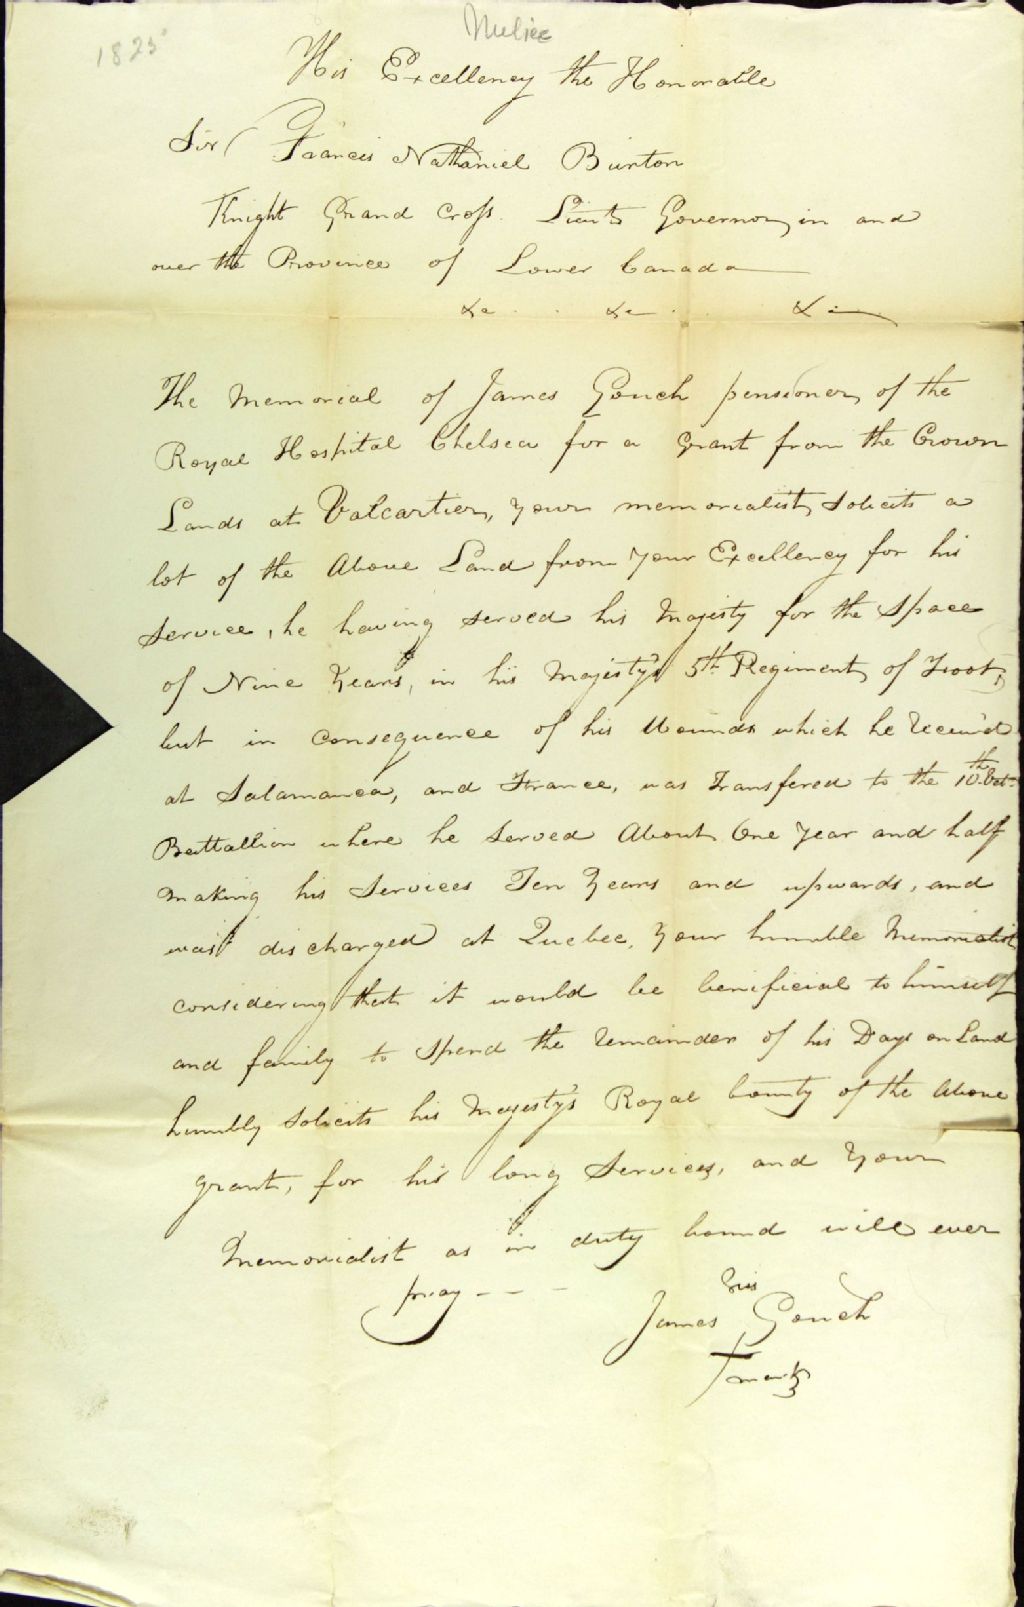 1825
Milice
His Excellency the Honorable
Sir Francis Nathaniel Burton
Knight Grand Cross. Lieut Governor, in and
over the Province of Lower Canada
&c &c &c
The Memorial of James Gouch pensioner, of the
Royal Hospital Chelsea for a grant from the Crown
Lands at Valcartier, your memorialist, solicits a
lot of the Above Land from your Excellency for his
Service, he having served his Majesty for the Space
of Nine Years, in his Majesty's 5th Regiment, of Foot,
but in consequence of his Wounds which he Receiv'd
at Salamanca, and France, was Transfered to the 10th Vet
Battallion where he Served About One year and half
Making his Services Ten Years and upwards, and
was discharged at Quebec, your humble Memorialist
considering that it would be benificial to himself
and family to Spend the Remainder of his Days on Land
humbly Solicits his Majesty's Royal bounty of the Above
grant, for his long Services, and your
Memorialist as in duty bound will ever
pray - - -
his
James Gouch
+ mark